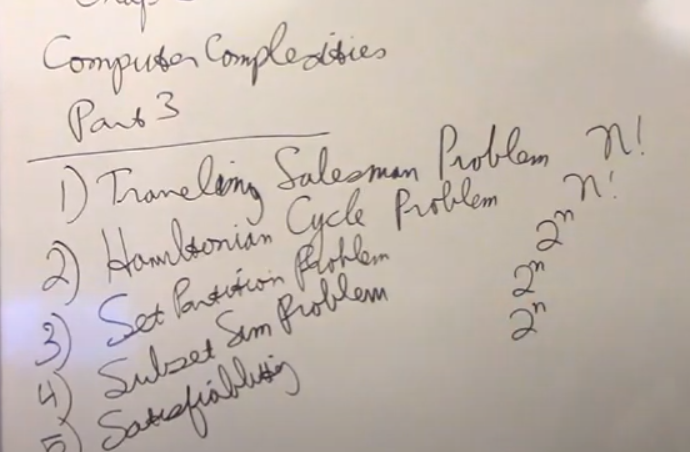 Computer Complexities
Part 3
1) Traveling Salesman Problem n!
2) Hamiltonian Cycle Problem n!
3) Set Partition Problem 2ⁿ
4) Subset Sum Problem 2ⁿ
5) Satisfiability 2ⁿ